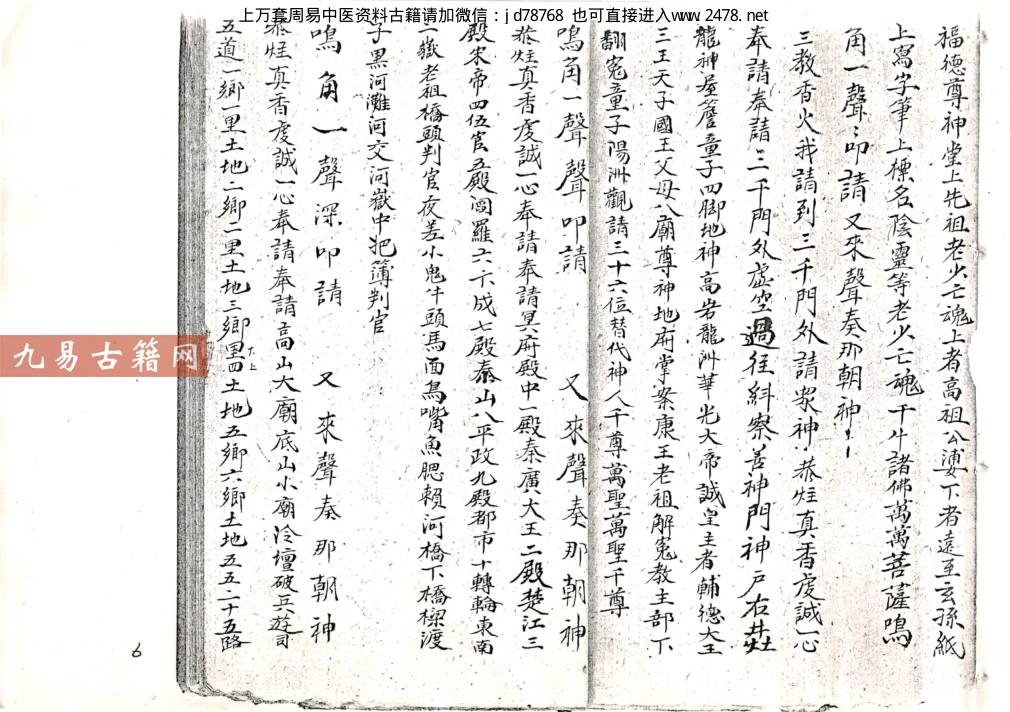 上万套周易中医资料古籍请加微信：jd78768 也可直接进入www.2478.net
福德尊神堂上先祖老少亡魂上者高祖公婆下者遠至玄孫紙
上寫字筆上標名陰靈等老少亡魂千千諸佛萬萬菩薩鳴
角一聲〻叩請又來聲奏那朝神〻
三教香火我請到三千門外請眾神〻恭炷真香虔誠一心
奉請奉請〻三千門外虛空過往糾察善神門神戶右井灶
龍神屋簷童子四脚地神高岩龍洲華光大帝誠皇主者輔德大王
三王天子國王父母八廟尊神地府掌案康王老祖解冤教主部下
翻冤童子陽洲觀請三十六位替代神人千尊萬聖萬聖千尊
鳴角一聲聲叩請 又來聲奏那朝神
恭炷真香虔誠一心奉請奉請冥府殿中一殿秦廣大王二殿楚江三
殿宋帝四伍官五殿閻羅六卞成七殿泰山八平政九殿都市十轉輪東南
一嶽老祖橋頭判官夜差小鬼牛頭馬面鳥嘴魚腮賴河橋下橋樑渡
子黑河灘河交河嶽中把簿判官
鳴角一聲深叩請 又來聲奏那朝神
恭炷真香虔誠一心奉請奉請高山大廟底山小廟冷壇破兵遊司
五道一鄉一里土地二鄉二里土地三鄉里四土地五鄉六鄉土地五五二十五路
下上
九易古籍网
6